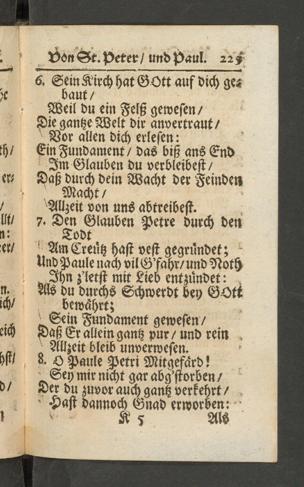 Von St. Peter/ und Paul. 225
6. Sein Kirch hat GOtt auf dich ge-
baut/
Weil du ein Felß gewesen/
Die gantze Welt dir anvertraut/
Vor allen dich erlesen:
Ein Fundament/ das biß ans End
Im Glauben du verbleibest/
Daß durch dein Wacht der Feinden
Macht/
Allzeit von uns abtreibest.
7. Den Glauben Petre durch den
Todt
Am Creütz hast vest gegründet;
Und Paule nach vil G'fahr/ und Noth
Ihn z'letst mit Lieb entzündet:
Als du durchs Schwerdt bey GOtt
bewährt;
Sein Fundament gewesen/
Daß Er allein gantz pur/ und rein
Allzeit bleib unverwesen.
8. O Paule Petri Mitgefärd!
Sey mir nicht gar abg'storben/
Der du zuvor auch gantz verkehrt/
Hast dannoch Gnad erworben:
K 5 Als